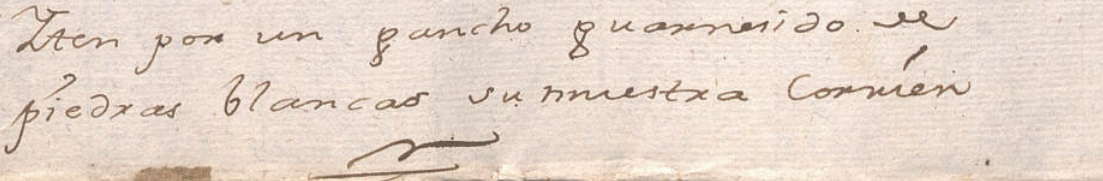 Iten por un gancho guarnesido de
piedras blancas su muestra Corrien